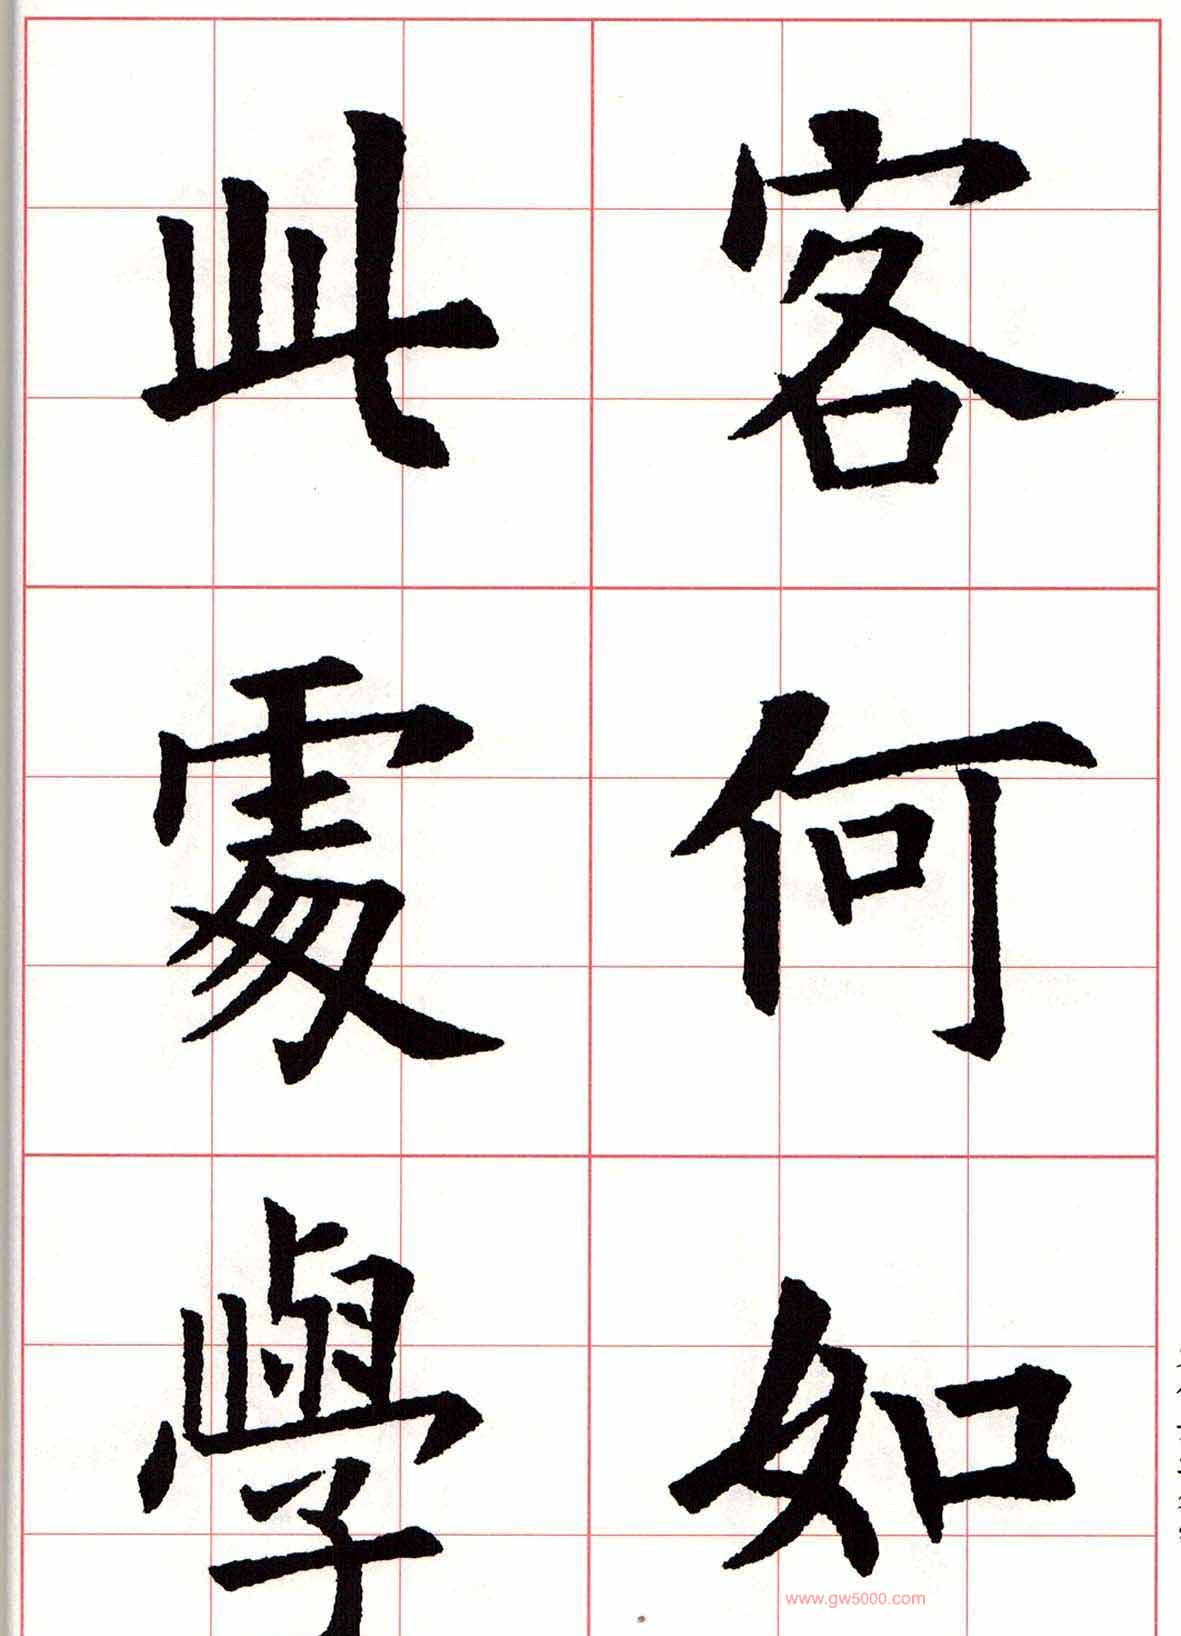 客何如
此處學
www.gw5000.com